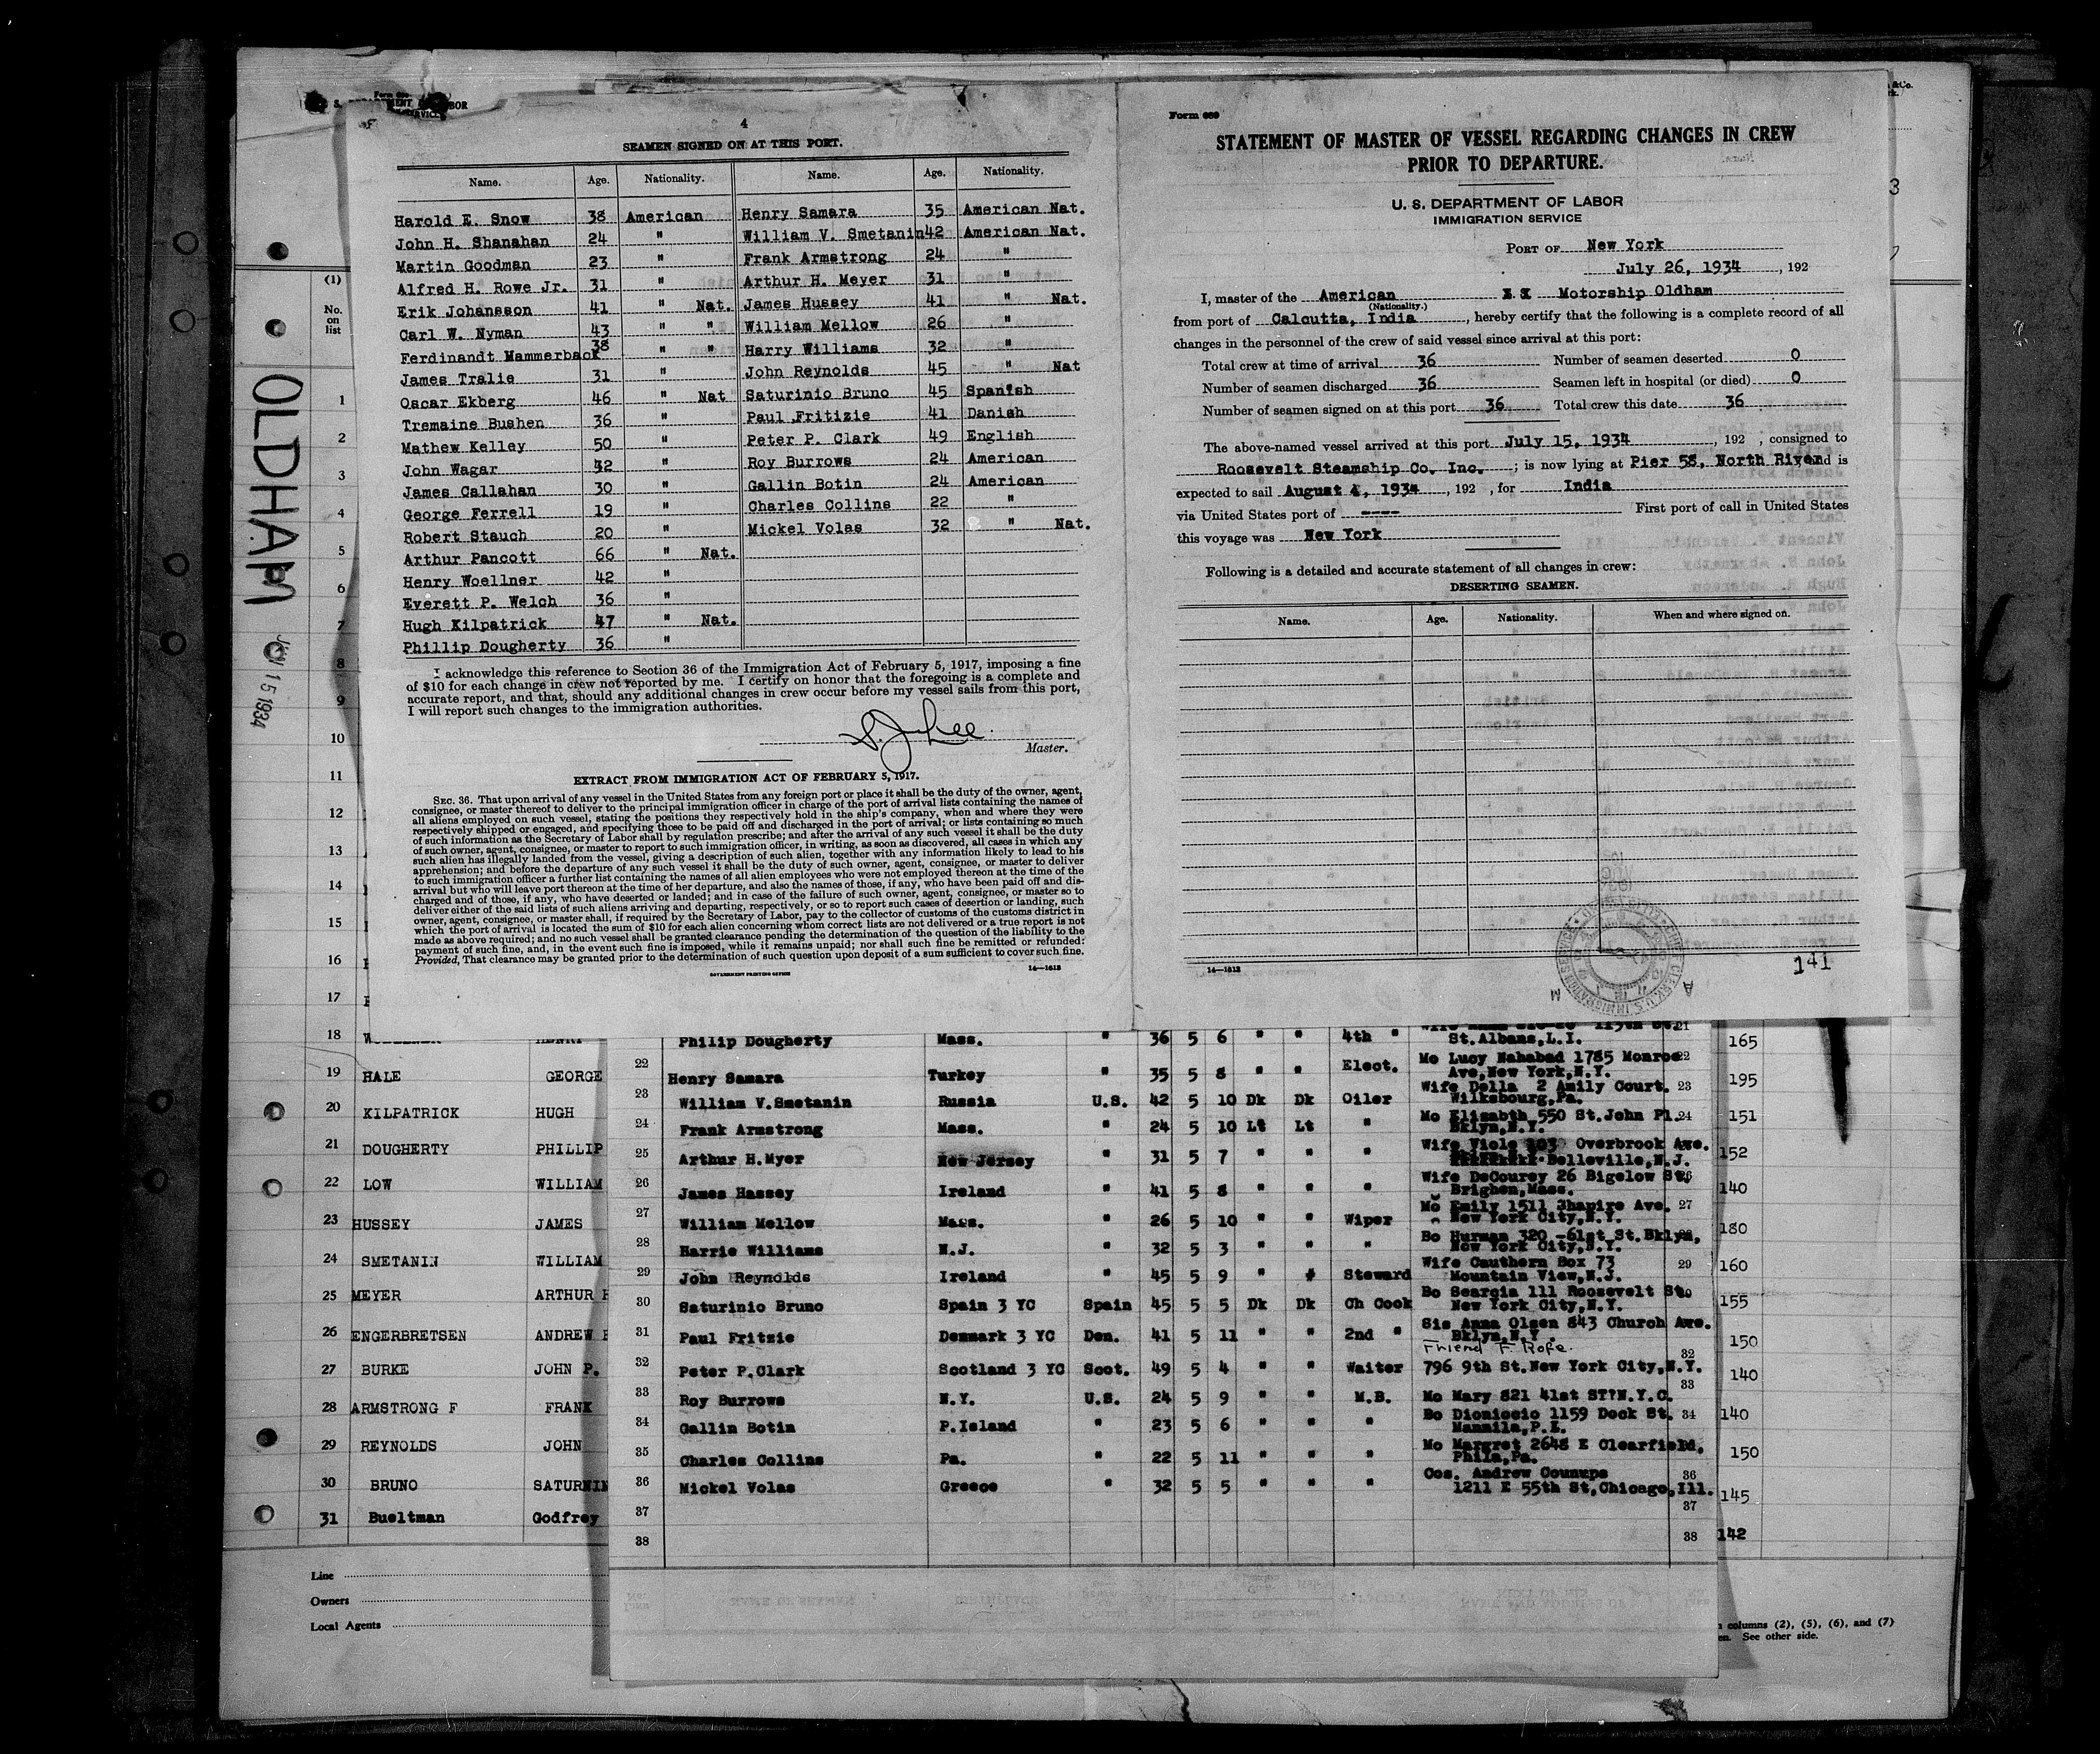 OLDHAM
15 1934
4
SEAMEN SIGNED ON AT THIS PORT.
Name. Age. Nationality. Name. Age. Nationality.
Harold E. Snow 38 American Henry Samara 35 American Nat.
John H. Shanahan 24 " William V. Smetanin 42 American Nat.
Martin Goodman 23 " Frank Armstrong 24 "
Alfred H. Rowe Jr. 31 " Arthur H. Meyer 31 "
Erik Johansson 41 " Nat. James Hussey 41 " Nat.
Carl W. Nyman 43 " " William Mellow 26 "
Ferdinandt Mammerback 38 " " Harry Williams 32 "
James Tralie 31 " John Reynolds 45 " Nat
Oscar Ekberg 46 " Nat Saturinio Bruno 45 Spanish
Tremaine Bushen 36 " Paul Fritizie 41 Danish
Mathew Kelley 50 " Peter P. Clark 49 English
John Wagar 42 " Roy Burrows 24 American
James Callahan 30 " Gallin Botin 24 American
George Ferrell 19 " Charles Collins 22 "
Robert Stauch 20 " Mickel Volas 32 " Nat.
Arthur Pancott 66 " Nat.
Henry Woellner 42 "
Everett P. Welch 36 "
Hugh Kilpatrick 47 " Nat.
Phillip Dougherty 36 "
I acknowledge this reference to Section 36 of the Immigration Act of February 5, 1917, imposing a fine
of $10 for each change in crew not reported by me. I certify on honor that the foregoing is a complete and
accurate report, and that, should any additional changes in crew occur before my vessel sails from this port,
I will report such changes to the immigration authorities.
Master.
EXTRACT FROM IMMIGRATION ACT OF FEBRUARY 5, 1917.
SEC. 36. That upon arrival of any vessel in the United States from any foreign port or place it shall be the duty of the owner, agent,
consignee, or master thereof to deliver to the principal immigration officer in charge of the port of arrival lists containing the names of
all aliens employed on such vessel, stating the positions they respectively hold in the ship's company, when and where they were
respectively shipped or engaged, and specifying those to be paid off and discharged in the port of arrival; or lists containing so much
of such information as the Secretary of Labor shall by regulation prescribe; and after the arrival of any such vessel it shall be the duty
of such owner, agent, consignee, or master to report to such immigration officer, in writing, as soon as discovered, all cases in which any
such alien has illegally landed from the vessel, giving a description of such alien, together with any information likely to lead to his
apprehension; and before the departure of any such vessel it shall be the duty of such owner, agent, consignee, or master to deliver
to such immigration officer a further list containing the names of all alien employees who were not employed thereon at the time of the
arrival but who will leave port thereon at the time of her departure, and also the names of those, if any, who have been paid off and dis-
charged and of those, if any, who have deserted or landed; and in case of the failure of such owner, agent, consignee, or master so to
deliver either of the said lists of such aliens arriving and departing, respectively, or so to report such cases of desertion or landing, such
owner, agent, consignee, or master shall, if required by the Secretary of Labor, pay to the collector of customs of the customs district in
which the port of arrival is located the sum of $10 for each alien concerning whom correct lists are not delivered or a true report is not
made as above required; and no such vessel shall be granted clearance pending the determination of the question of the liability to the
payment of such fine, and, in the event such fine is imposed, while it remains unpaid; nor shall such fine be remitted or refunded:
Provided, That clearance may be granted prior to the determination of such question upon deposit of a sum sufficient to cover such fine.
GOVERNMENT PRINTING OFFICE 14—1613
Form 689
STATEMENT OF MASTER OF VESSEL REGARDING CHANGES IN CREW
PRIOR TO DEPARTURE.
U. S. DEPARTMENT OF LABOR
IMMIGRATION SERVICE
PORT OF New York
July 26, 1934, 192
I, master of the American Motorship Oldham
(Nationality.)
from port of Calcutta, India, hereby certify that the following is a complete record of all
changes in the personnel of the crew of said vessel since arrival at this port:
Total crew at time of arrival 36 Number of seamen deserted 0
Number of seamen discharged 36 Seamen left in hospital (or died) 0
Number of seamen signed on at this port 36 Total crew this date 36
The above-named vessel arrived at this port July 15, 1934, 192 , consigned to
Roosevelt Steamship Co. Inc. ; is now lying at Pier 58, North River and is
expected to sail August 4, 1934, 192 , for India
via United States port of ---- First port of call in United States
this voyage was New York
Following is a detailed and accurate statement of all changes in crew:
DESERTING SEAMEN.
Name. Age. Nationality. When and where signed on.
14—1613
141
(1)
No.
on
list
1
2
3
4
5
6
7
8
9
10
11
12
13
14
15
16
17
18
19 HALE GEORGE
20 KILPATRICK HUGH
21 DOUGHERTY PHILLIP
22 LOW WILLIAM
23 HUSSEY JAMES
24 SMETANIN WILLIAM
25 MEYER ARTHUR
26 ENGERBRETSEN ANDREW
27 BURKE JOHN P.
28 ARMSTRONG F FRANK
29 REYNOLDS JOHN
30 BRUNO SATURNIN
31 Bueltman Godfrey
Line
Owners
Local Agents
Philip Dougherty Mass. " 36 5 6 " " 4th " St.Albans,L.I. 21
22 Henry Samara Turkey " 35 5 8 " " Elect. Mo Lucy Nahabad 1785 Monroe 22
Ave,New York,N.Y.
23 William V.Smetanin Russia U.S. 42 5 10 Dk Dk Oiler Wife Della 2 Amily Court. 23
Wilksbourg,Pa.
24 Frank Armstrong Mass. " 24 5 10 Lt Lt " Mo Elisabth 550 St.John Pl. 24
Bklyn,N.Y.
25 Arthur H.Myer New Jersey " 31 5 7 " " " Wife Viole 303 Overbrook Ave.
Belleville,N.J.
26 James Hassey Ireland " 41 5 8 " " " Wife DeCourey 26 Bigelow St. 26
Brighen,Mass.
27 William Mellow Mass. " 26 5 10 " " Wiper Mo Emily 1511 Shapire Ave. 27
New York City,N.Y.
28 Harrie Williams N.J. " 32 5 3 " " " Bo Hurman 320 -61st St.Bklyn,
New York City,N.Y.
29 John Reynolds Ireland " 45 5 9 " " Steward Wife Cauthern Box 73 29
Mountain View,N.J.
30 Saturinio Bruno Spain 3 YC Spain 45 5 5 Dk Dk Ch Cook Bo Seargia 111 Roosevelt St. 30
New York City,N.Y.
31 Paul Fritzie Denmark 3 YC Den. 41 5 11 " " 2nd " Sis Anna Olsen 843 Church Ave.
Bklyn,N.Y.
Friend F. Rofe.
32 Peter P.Clark Scotland 3 YC Scot. 49 5 4 " " Waiter 796 9th St.New York City,N.Y. 32
33 Roy Burrows N.Y. U.S. 24 5 9 " " M.B. Mo Mary 821 41st ST?N.Y.C. 33
34 Gallin Botin P.Island " 23 5 6 " " " Bo Dioniccio 1159 Dock St. 34
Mannila,P.I.
35 Charles Collins Pa. " 22 5 11 " " " Mo Margret 2648 E Clearfield,
Phila,Pa.
36 Mickel Volas Greece " 32 5 5 " " " Cos. Andrew Counups 36
1211 E 55th St,Chicago,Ill.
37 37
38 38
165
195
151
152
140
180
160
155
150
140
140
150
145
142
columns (2), (5), (6), and (7)
See other side.